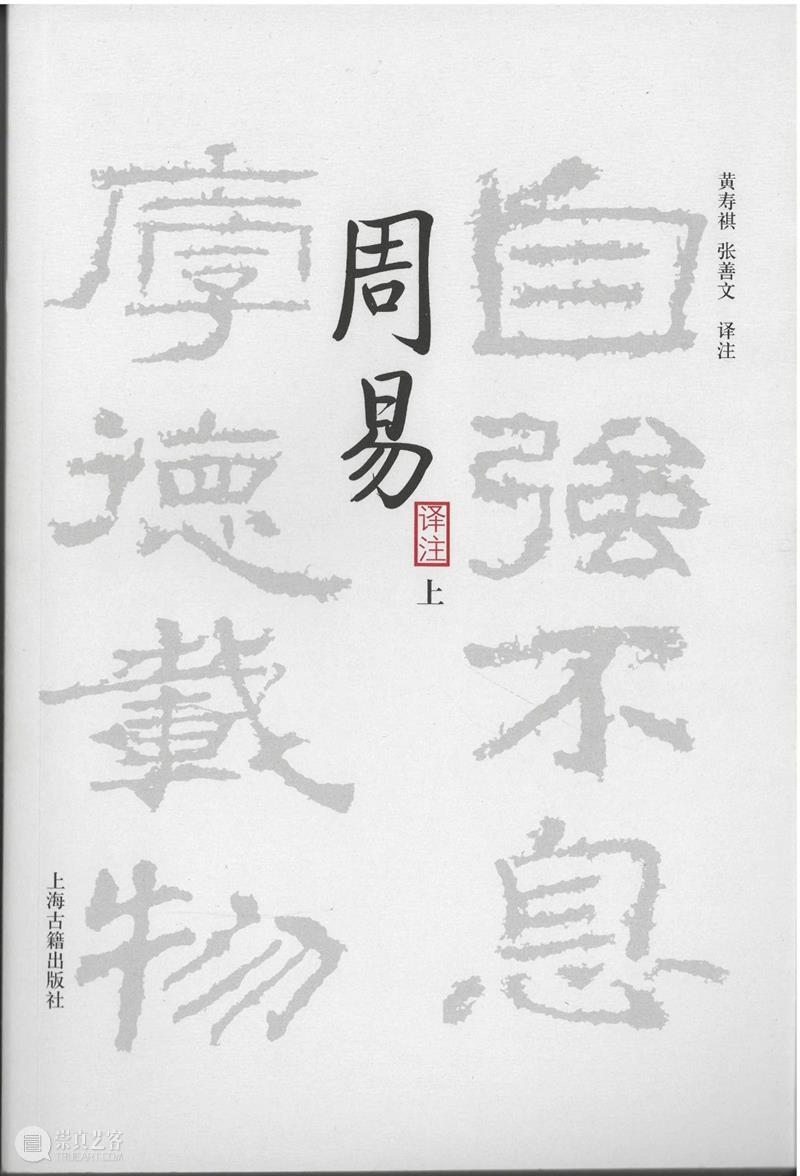 黄寿祺 张善文 译注
自强不息
厚德載物
周易
译注
上
上海古籍出版社
崇真艺客
TRUEART.COM